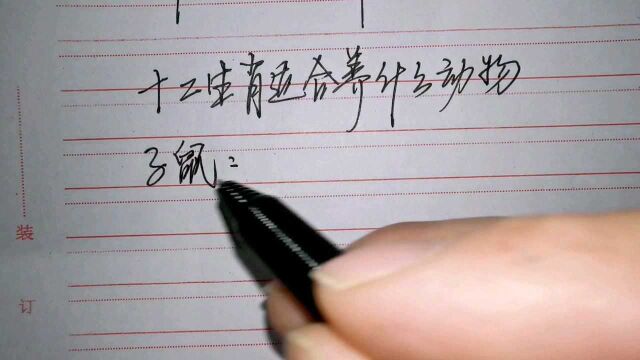 十二生肖适合养什么动物
子鼠：
装
订